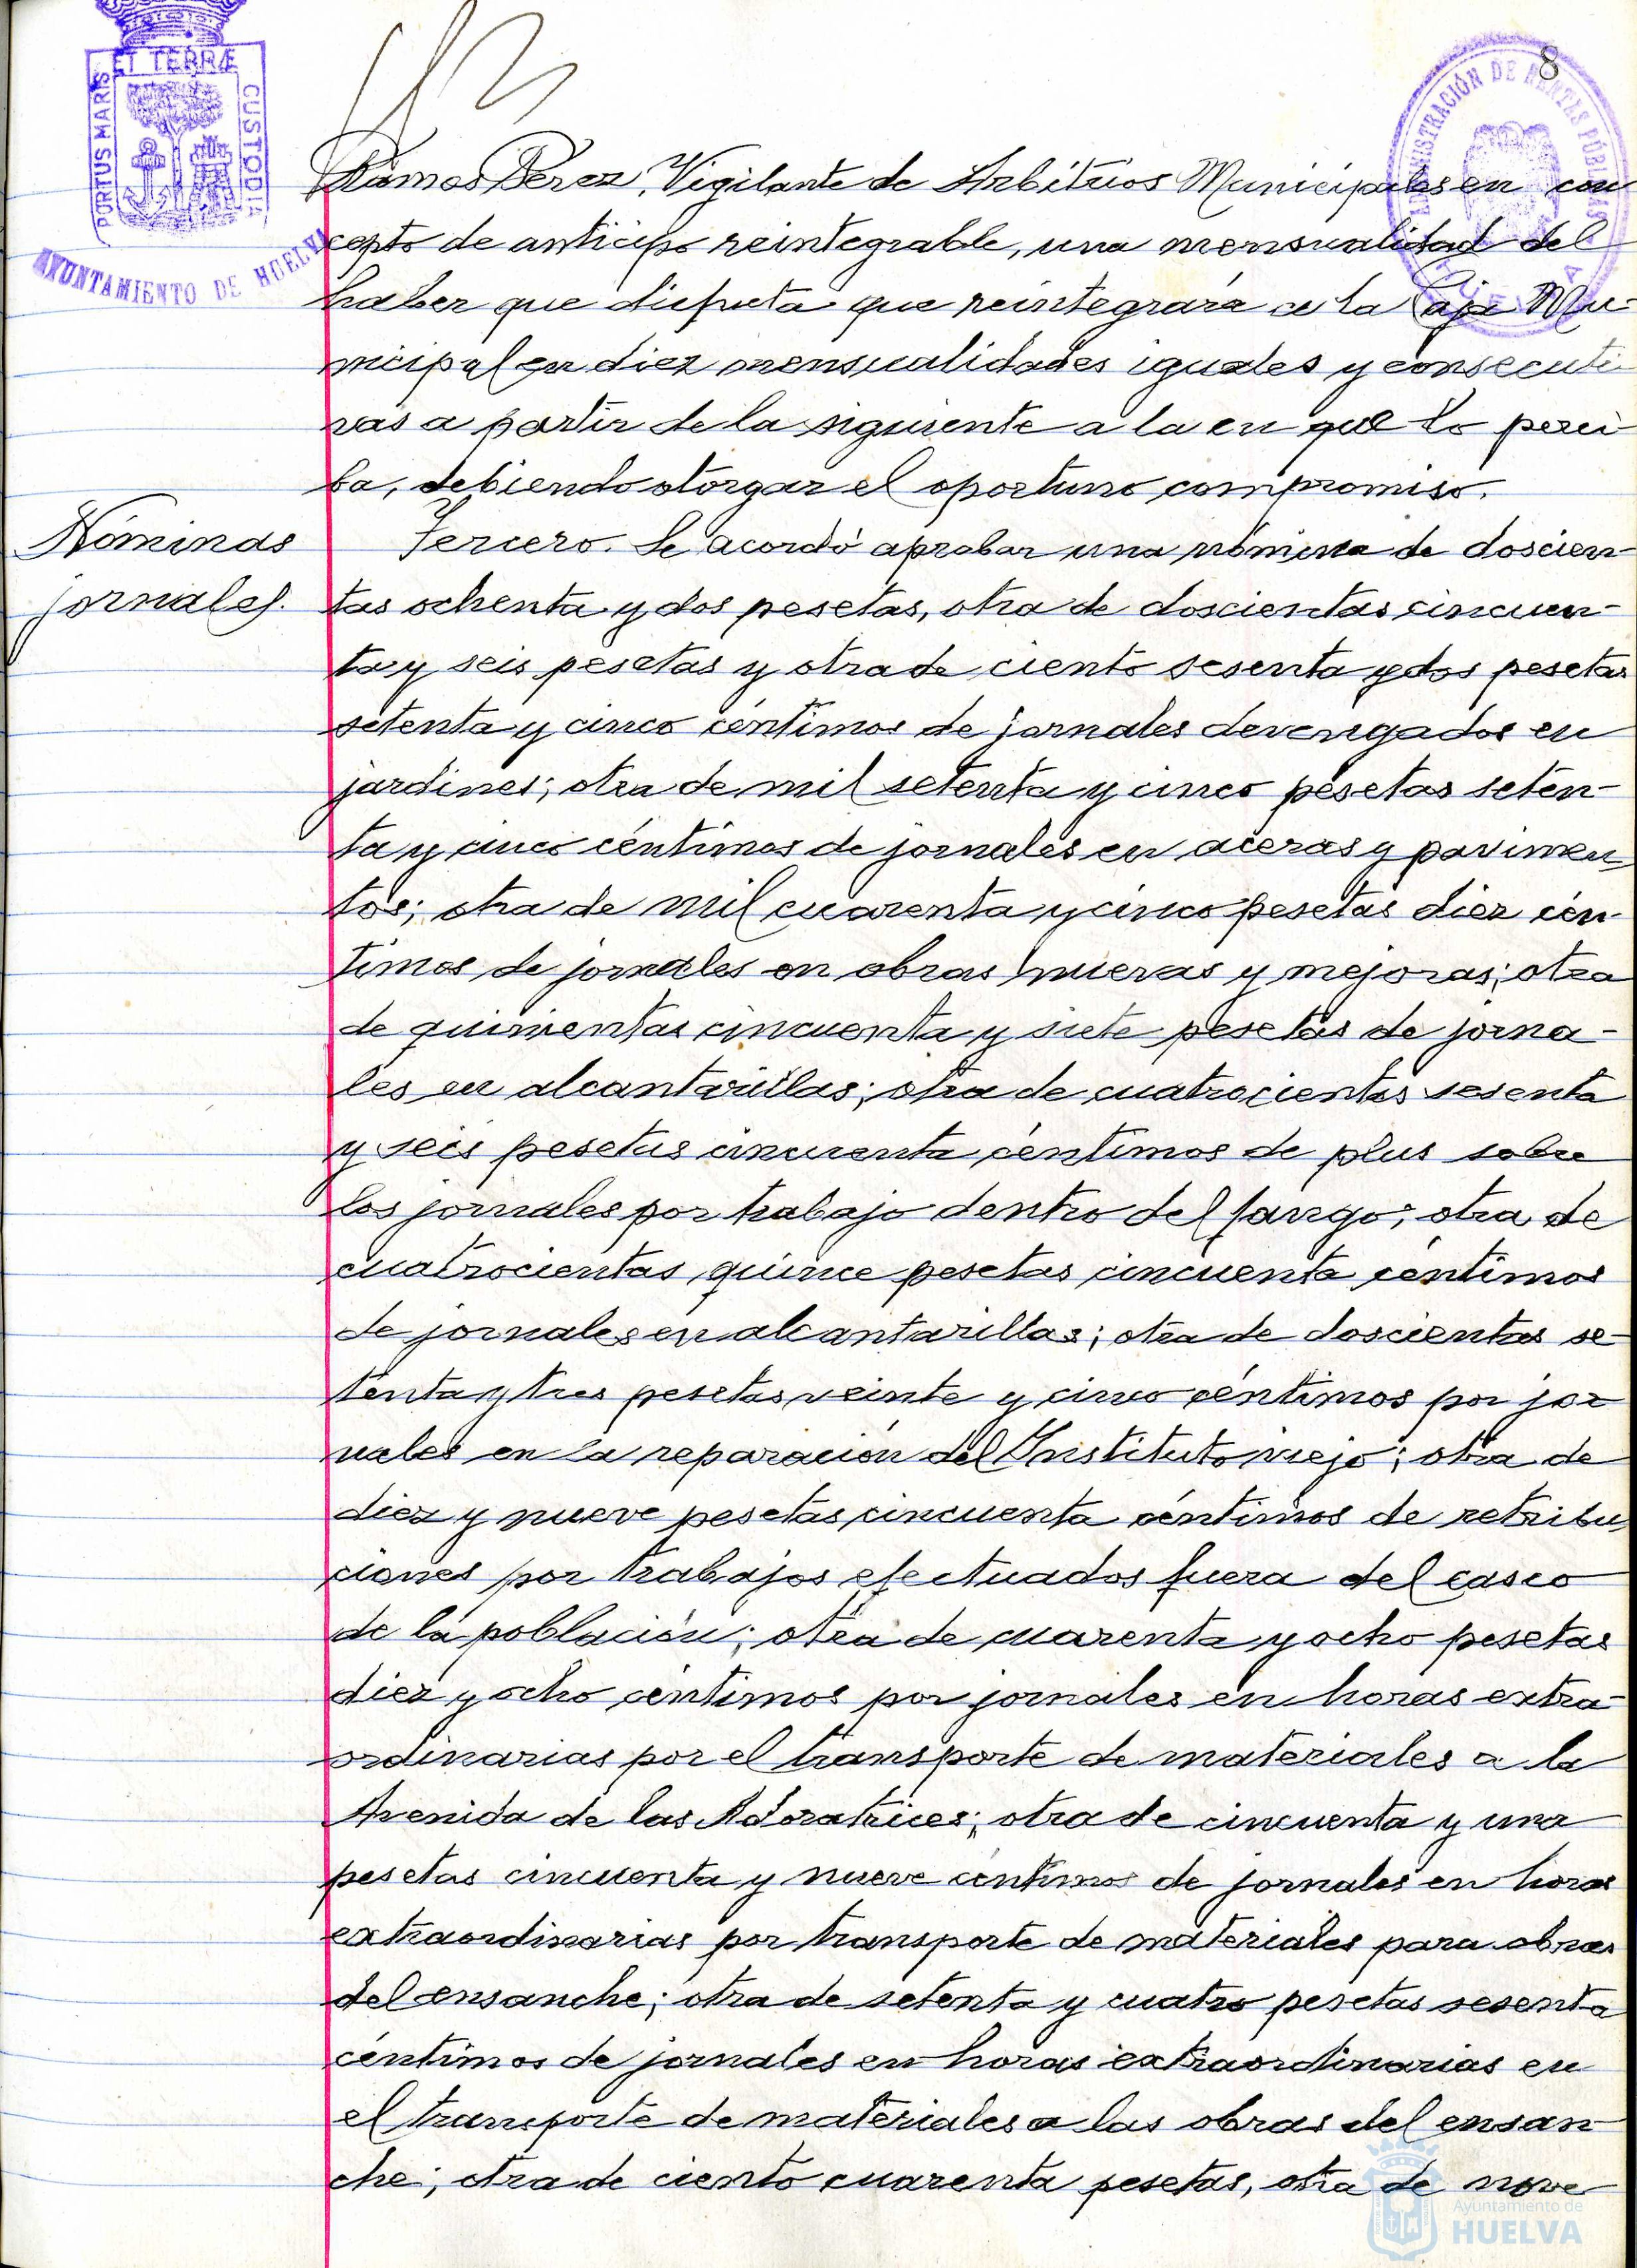 8
ET TERRÆ
PORTUS MARIS
CUSTODIA
AYUNTAMIENTO DE HUELVA
ADMINISTRACIÓN DE RENTAS PÚBLICAS
HUELVA
Ramos Pérez, Vigilante de Arbitrios Municipales en con
cepto de anticipo reintegrable, una mensualidad del
haber que disfruta que reintegrará a la Caja Mu-
nicipal en diez mensualidades iguales y consecuti
vas a partir de la siguiente a la en que lo perci
ba, debiendo otorgar el oportuno compromiso.
Nóminas
jornales.
Tercero. Se acordó aprobar una nómina de doscien-
tas ochenta y dos pesetas, otra de doscientas cincuen-
ta y seis pesetas y otra de ciento sesenta y dos pesetas
setenta y cinco céntimos de jornales devengados en
jardines; otra de mil setenta y cinco pesetas seten-
ta y cinco céntimos de jornales en aceras y pavimen
tos; otra de mil cuarenta y cinco pesetas diez cén-
timos de jornales en obras nuevas y mejoras; otra
de quinientas cincuenta y siete pesetas de jorna-
les en alcantarillas; otra de cuatrocientas sesenta
y seis pesetas cincuenta céntimos de plus sobre
los jornales por trabajo dentro del fango; otra de
cuatrocientas quince pesetas cincuenta céntimos
de jornales en alcantarillas; otra de doscientas se-
tenta y tres pesetas veinte y cinco céntimos por jor
nales en la reparación del Instituto viejo; otra de
diez y nueve pesetas cincuenta céntimos de retribu
ciones por trabajos efectuados fuera del casco
de la población; otra de cuarenta y ocho pesetas
diez y ocho céntimos por jornales en horas extra-
ordinarias por el transporte de materiales a la
Avenida de las Adoratrices; otra de cincuenta y una
pesetas cincuenta y nueve céntimos de jornales en horas
extraordinarias por transporte de materiales para obras
del ensanche; otra de setenta y cuatro pesetas sesenta
céntimos de jornales en horas extraordinarias en
el transporte de materiales a las obras del ensan
che; otra de ciento cuarenta pesetas, otra de nove
Ayuntamiento de
HUELVA